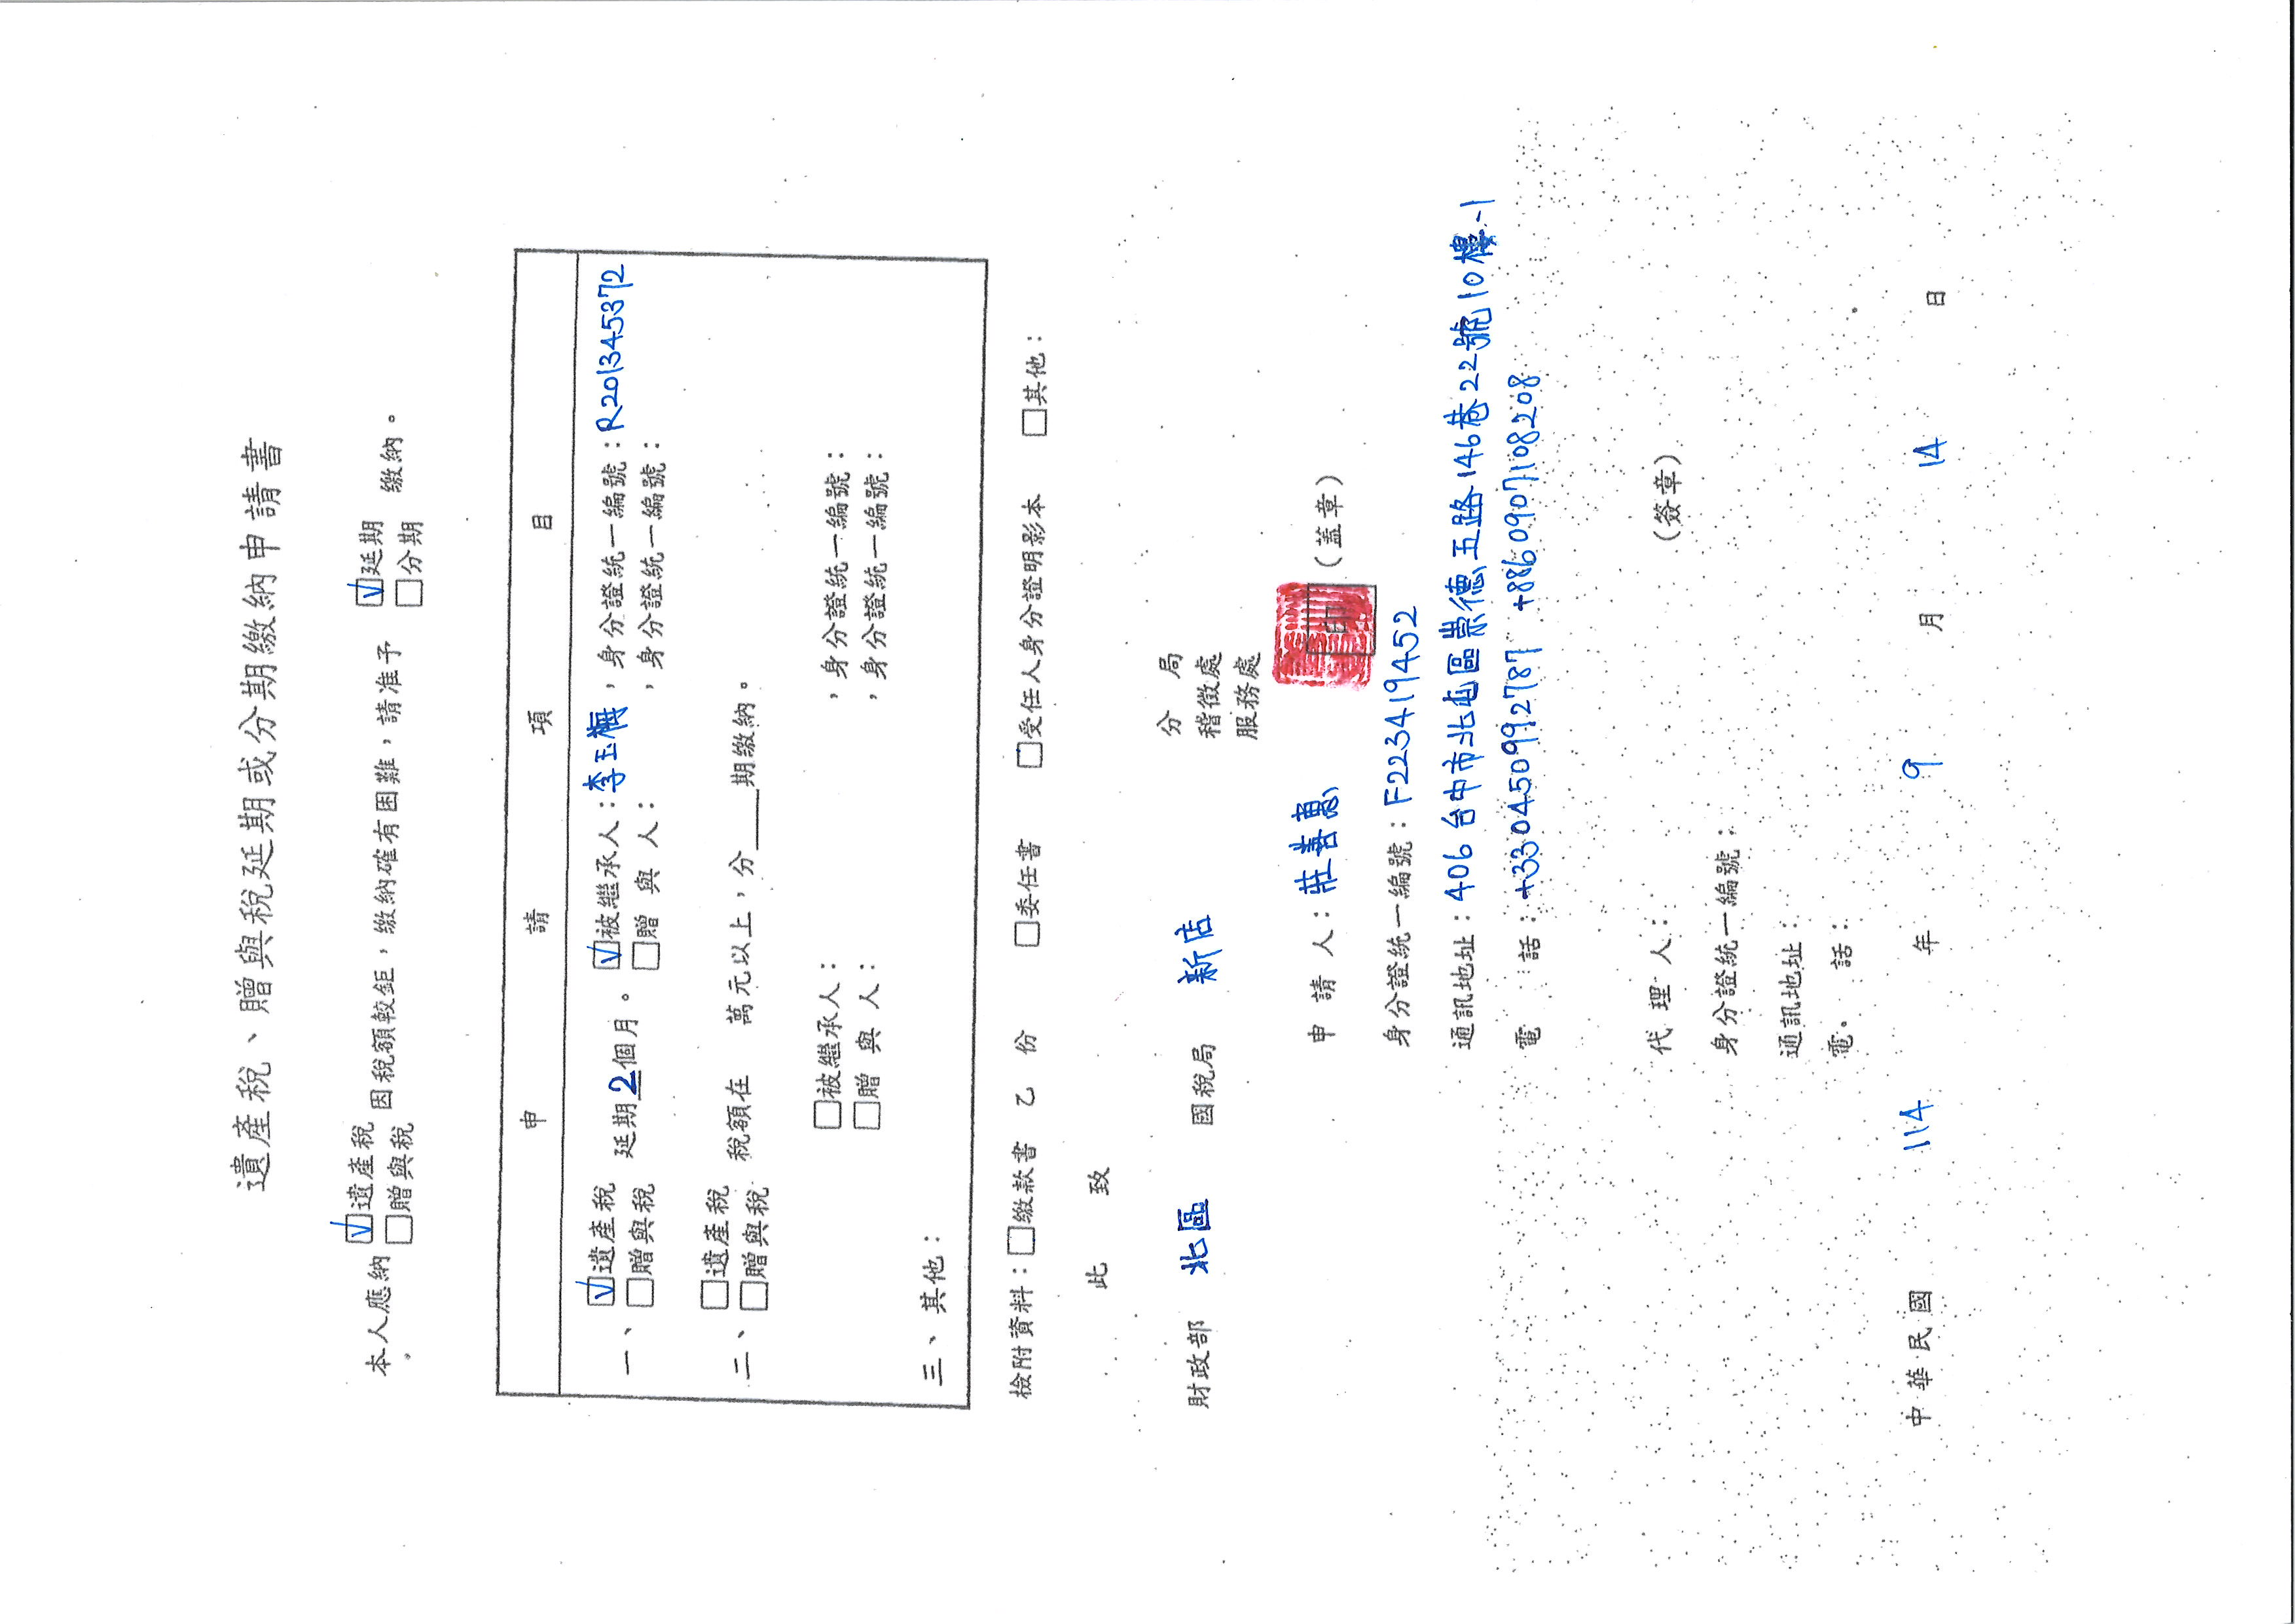 遺產稅、贈與稅延期或分期繳納申請書
本人應納 ☑遺產稅 □贈與稅 因稅額較鉅，繳納確有困難，請准予 ☑延期 □分期 繳納。
申 請 項 目
一、☑遺產稅 延期2個月。 ☑被繼承人：李玉梅，身分證統一編號：R201345372
□贈與稅 □贈 與 人： ，身分證統一編號：
二、□遺產稅 稅額在 萬元以上，分___期繳納。
□贈與稅
□被繼承人： ，身分證統一編號：
□贈 與 人： ，身分證統一編號：
三、其他：
檢附資料：□繳款書 乙 份 □委任書 □受任人身分證明影本 □其他：
此 致
財政部 北區 國稅局 新店 分 局
稽徵處
服務處
申 請 人：莊善惠 印 （蓋章）
身分證統一編號：F223419452
通訊地址：406台中市北屯區崇德五路146巷22號10樓-1
電 話：+330450992787 +8860907108208
代 理 人： （簽章）
身分證統一編號：
通訊地址：
電 話：
中 華 民 國 114 年 9 月 14 日